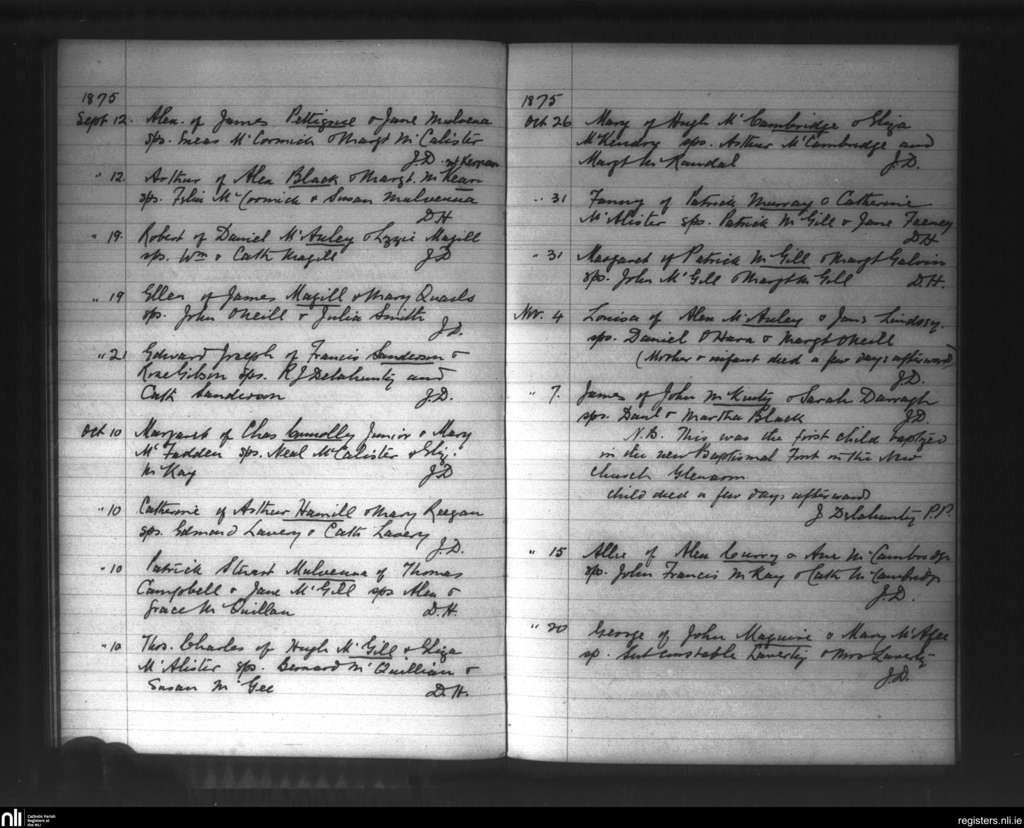 1875
Sept 12. Alex. of James Pettigrue & Jane Mulvena
sps. Eneas McCormick & Margt McAlister
J.D.
" 12. Arthur of Alex Black & Margt. McKean
sps. Felix McCormick & Susan Mulvenna
D.H
" 19. Robert of Daniel McAuley & Lizzie Magill
sps. Wm & Cath Magill J.D
" 19 Ellen of James Magill & Mary Quails
sps. John ONeill & Julia Smith
J.D.
" 21 Edward Joseph of Francis Sanderson &
Rose Gibson sps. R J Delahunty and
Cath Sanderson J.D.
Oct 10 Margaret of Chas Connolly Junior & Mary
McFadden sps. Neal McAlister & Eliz.
McKay J.D
" 10 Catherine of Arthur Hamill & Mary Reegan
sps. Edmond Lavery & Cath Lavery
J.D.
" 10 Patrick Stuart Mulvenna of Thomas
Campbell & Jane McGill sps Alex &
Grace McQuillan D.H.
" 10 Thos. Charles of Hugh McGill & Eliza
McAlister sps. Bernard McQuillian &
Susan McGee D.H.
1875
Oct 26 Mary of Hugh McCambridge & Eliza
McKendry sps. Arthur McCambridge and
Margt McRandal J.D.
" 31 Fanny of Patrick Murray & Catherine
McAlister sps. Patrick McGill & Jane Feeney
D.H
" 31 Margaret of Patrick McGill & Margt Galvin
sps. John McGill & Margt McGill D.H.
Nov. 4 Louisa of Alex McAuley & Jane Lindsey.
sps. Daniel OHara & Margt ONeill
(Mother & infant died a few days afterward)
J.D.
" 7. James of John McKinty & Sarah Darragh
sps. Danl & Martha Black J.D
N.B. This was the first child baptized
in the new Baptismal Font in the New
Church Glenarm
child died a few days afterward
J Delahunty P.P.
" 15 Allie of Alex Curry & Ann McCambridge
sps. John Francis McKay & Cath McCambridge
J.D.
" 20 George of John Maguire & Mary McAfee
sp. Sub constable Laverty & Mrs Laverty
J.D.
nli
Catholic Parish
Registers at
the NLI
registers.nli.ie